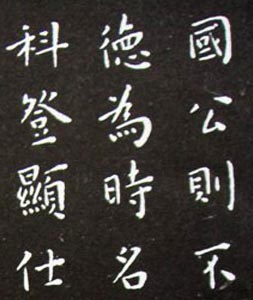 國公則不
德為時名
科登顯仕